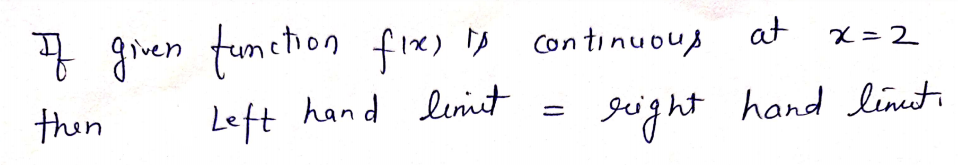 If given function f(x) is continuous at x=2
then Left hand limit = right hand limit.